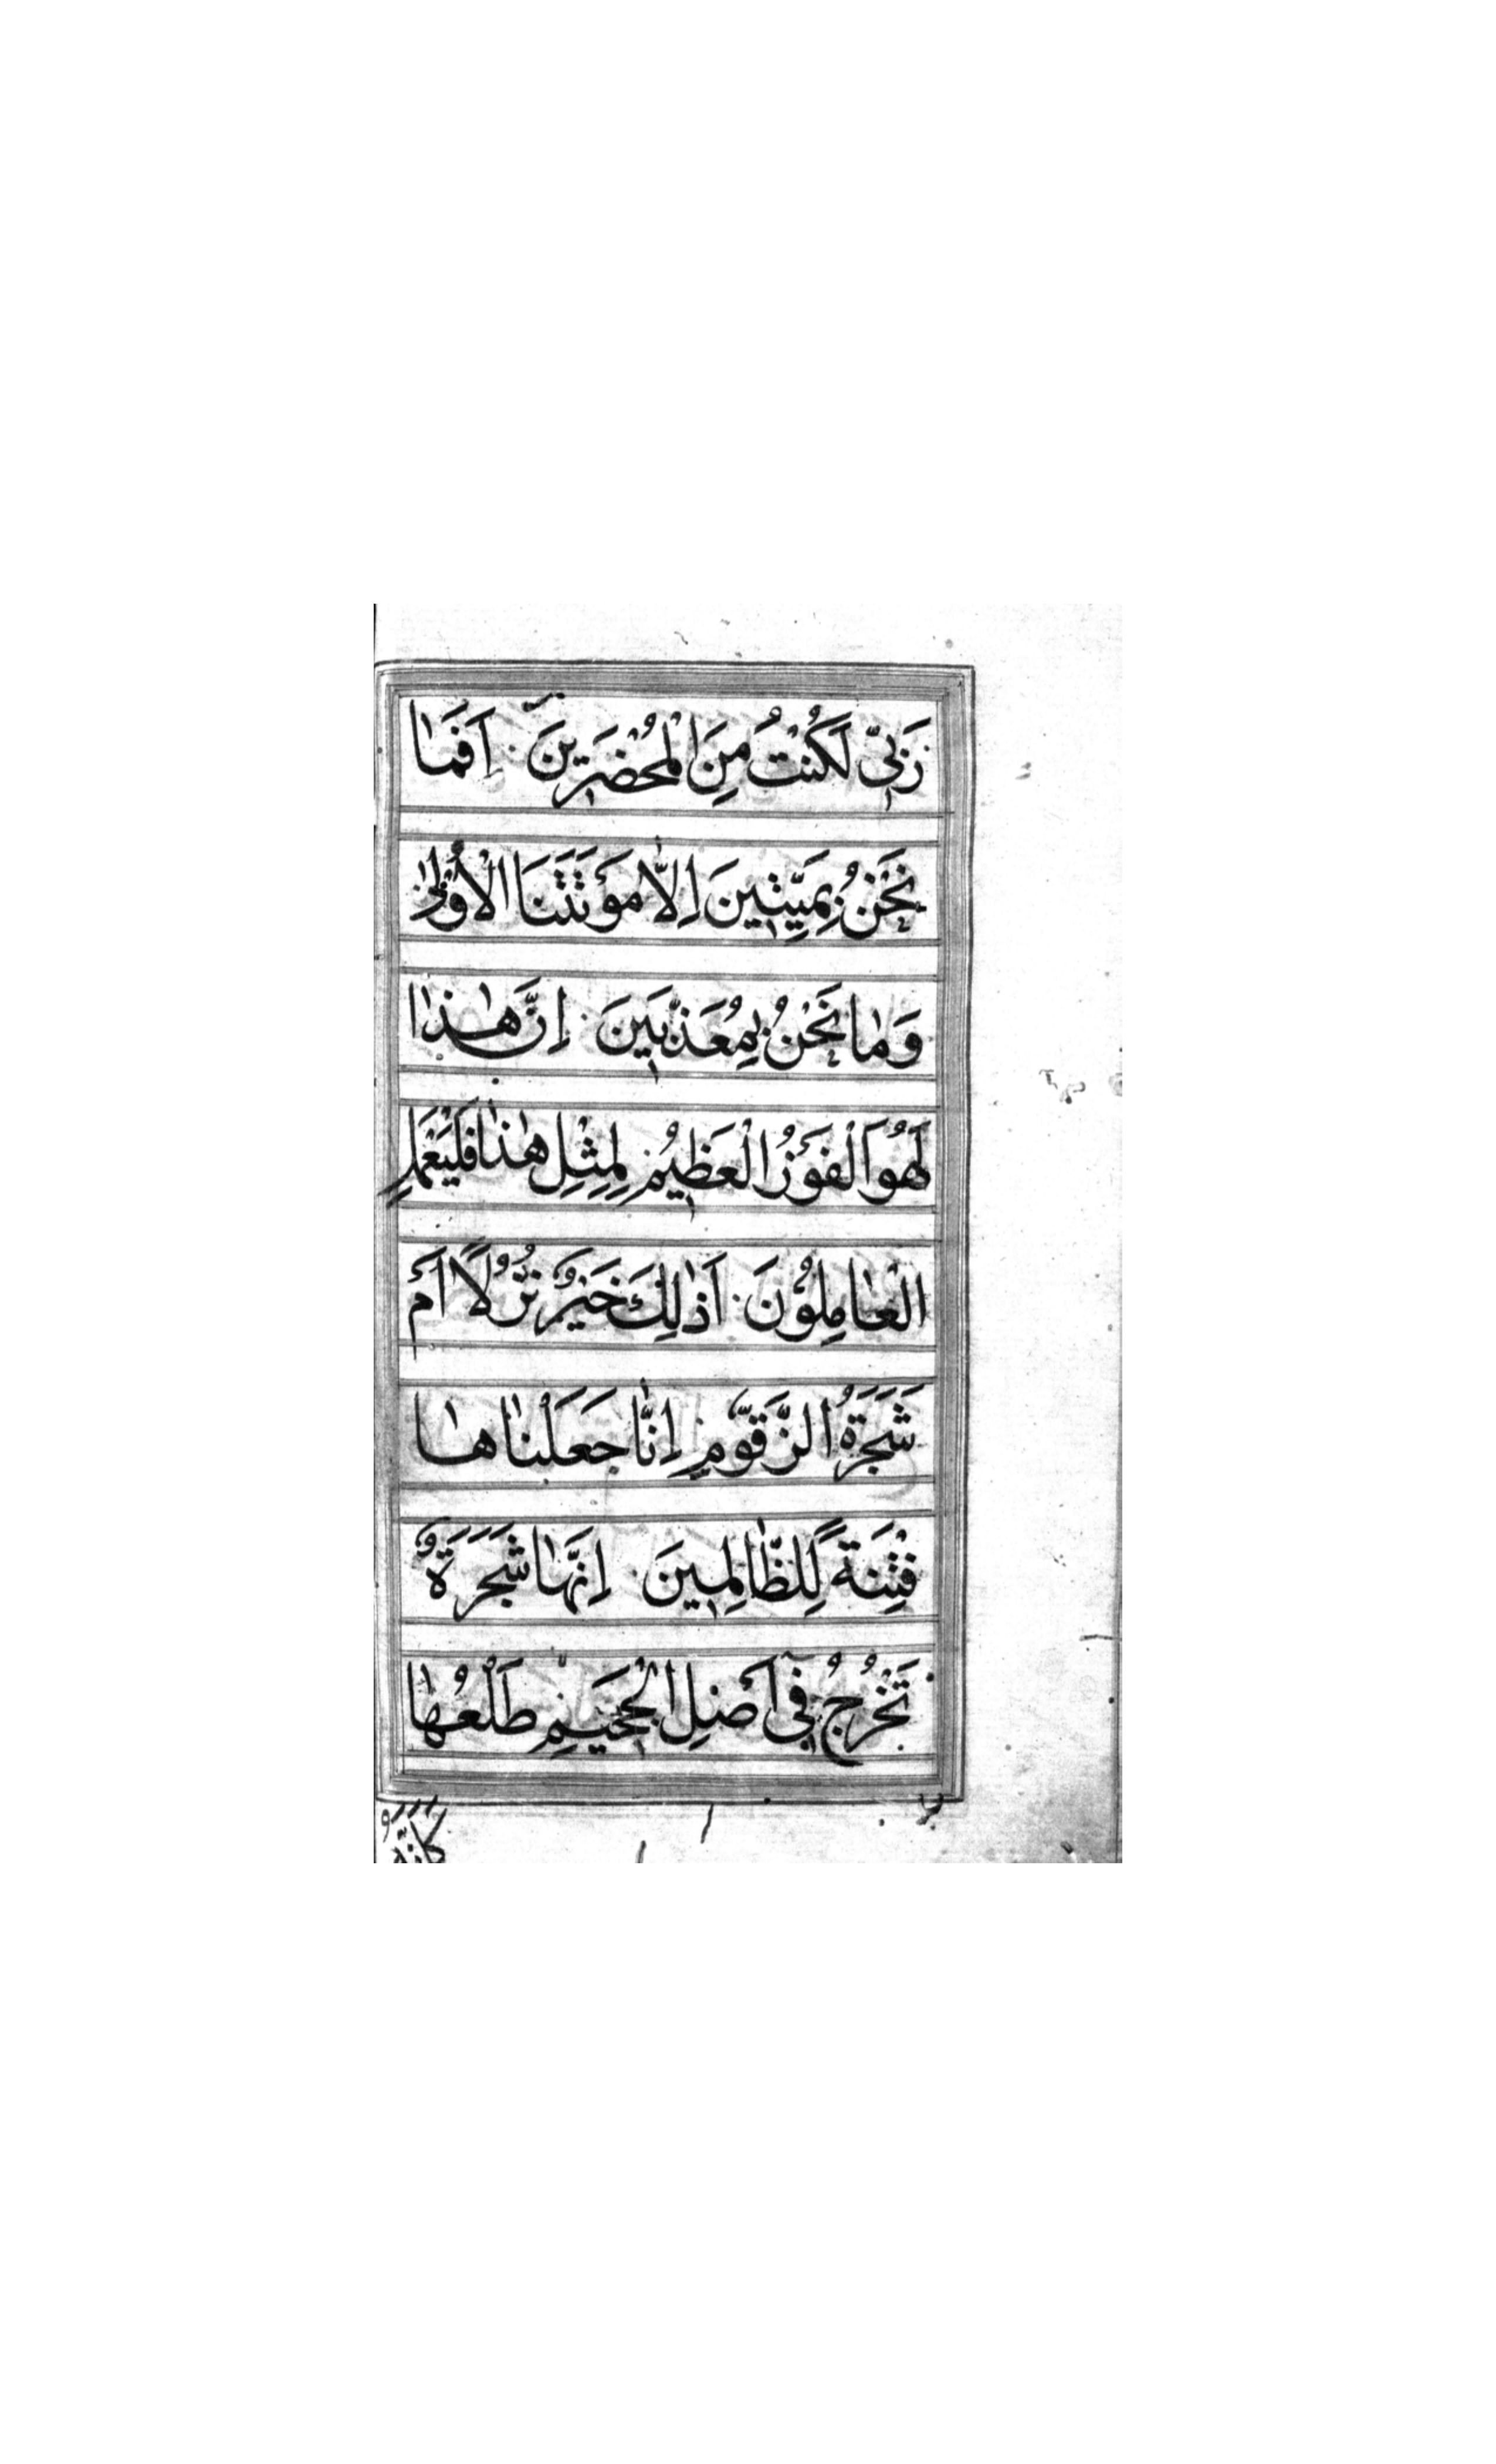 رَبّي لَكُنْتُ مِنَ الْمُحْضَرينَ اَفَمٰا
نَحْنُ بِمَيِّتينَ اِلّٰا مَوْتَتَنَا الْاُولىٰ
وَمٰا نَحْنُ بِمُعَذَّبينَ اِنَّ هٰذٰا
لَهُوَ الْفَوْزُ الْعَظيمُ لِمِثْلِ هٰذٰا فَلْيَعْمَلِ
الْعٰامِلُونَ اَذٰلِكَ خَيْرٌ نُزُلًا اَمْ
شَجَرَةُ الزَّقّوُمِ اِنّٰا جَعَلْنٰاهٰا
فِتْنَةً لِلظّٰالِمينَ اِنَّهٰا شَجَرَةٌ
تَخْرُجُ فى اَصْلِ الْجَحيمِ طَلْعُهٰا
كَاَنَّهُ